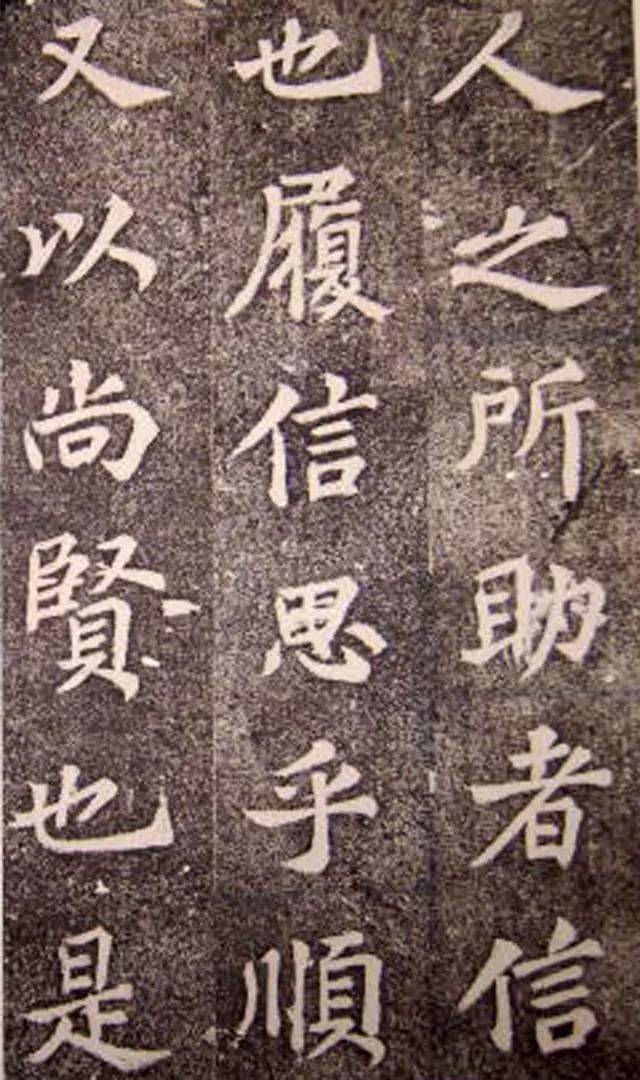 人之所助者信
也履信思乎順
又以尚賢也是